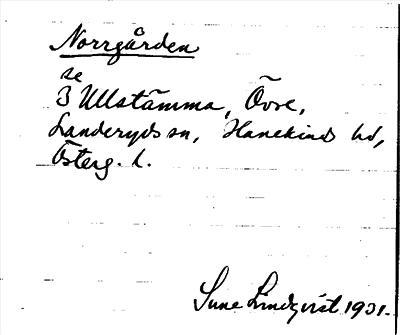 Norrgården
se
3 Ullstämma, Övre,
Landeryds sn, Hanekinds hd,
Österg. l.
Sune Lindqvist 1931.